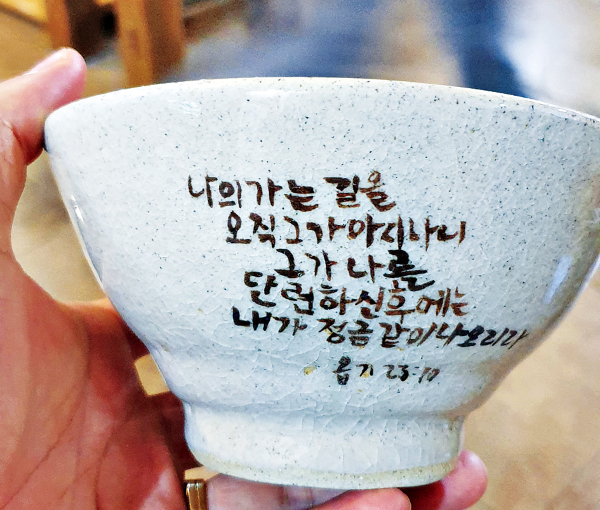 나의가는 길을
오직그가아시나니
그가 나를
단련하신후에는
내가 정금같이나오리라
욥기 23:10